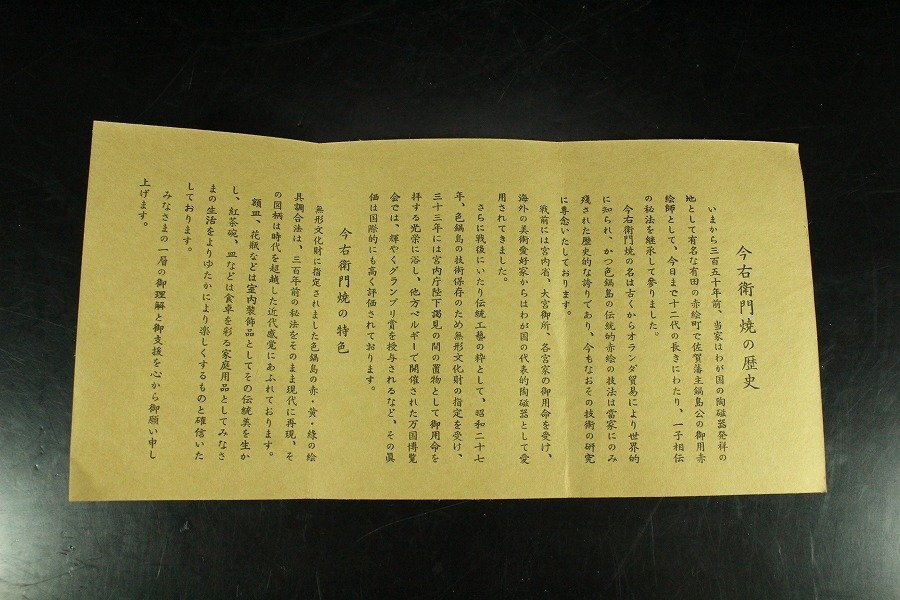 今右衛門焼の歴史
いまから三百五十年前、当家はわが国の陶磁器発祥の
地として有名な有田の赤絵町で佐賀藩主鍋島公の御用赤
絵師として、今日まで十二代の長きにわたり、一子相伝
の秘法を継承して参りました。
今右衛門焼の名は古くからオランダ貿易により世界的
に知られ、かつ色鍋島の伝統的赤絵の技法は當家にのみ
残された歴史的な誇りであり、今もなおその技術の研究
に専念いたしております。
戦前には宮内省、大宮御所、各宮家の御用命を受け、
海外の美術愛好家からはわが国の代表的陶磁器として愛
用されてきました。
さらに戦後にいたり伝統工藝の粋として、昭和二十七
年、色鍋島の技術保存のため無形文化財の指定を受け、
三十三年には宮内庁陛下謁見の間の置物として御用命を
拝する光栄に浴し、他方ベルギーで開催された万国博覧
会では、輝やくグランプリ賞を授与されるなど、その真
価は国際的にも高く評価されております。
今右衛門焼の特色
無形文化財に指定されました色鍋島の赤・黄・緑の絵
具調合法は、三百年前の秘法をそのまま現代に再現、そ
の図柄は時代を超越した近代感覚にあふれております。
額皿、花瓶などは室内装飾品としてその伝統美を生か
し、紅茶碗、皿などは食卓を彩る家庭用品としてみなさ
まの生活をよりゆたかにより楽しくするものと確信いた
しております。
みなさまの一層の御理解と御支援を心から御願い申し
上げます。